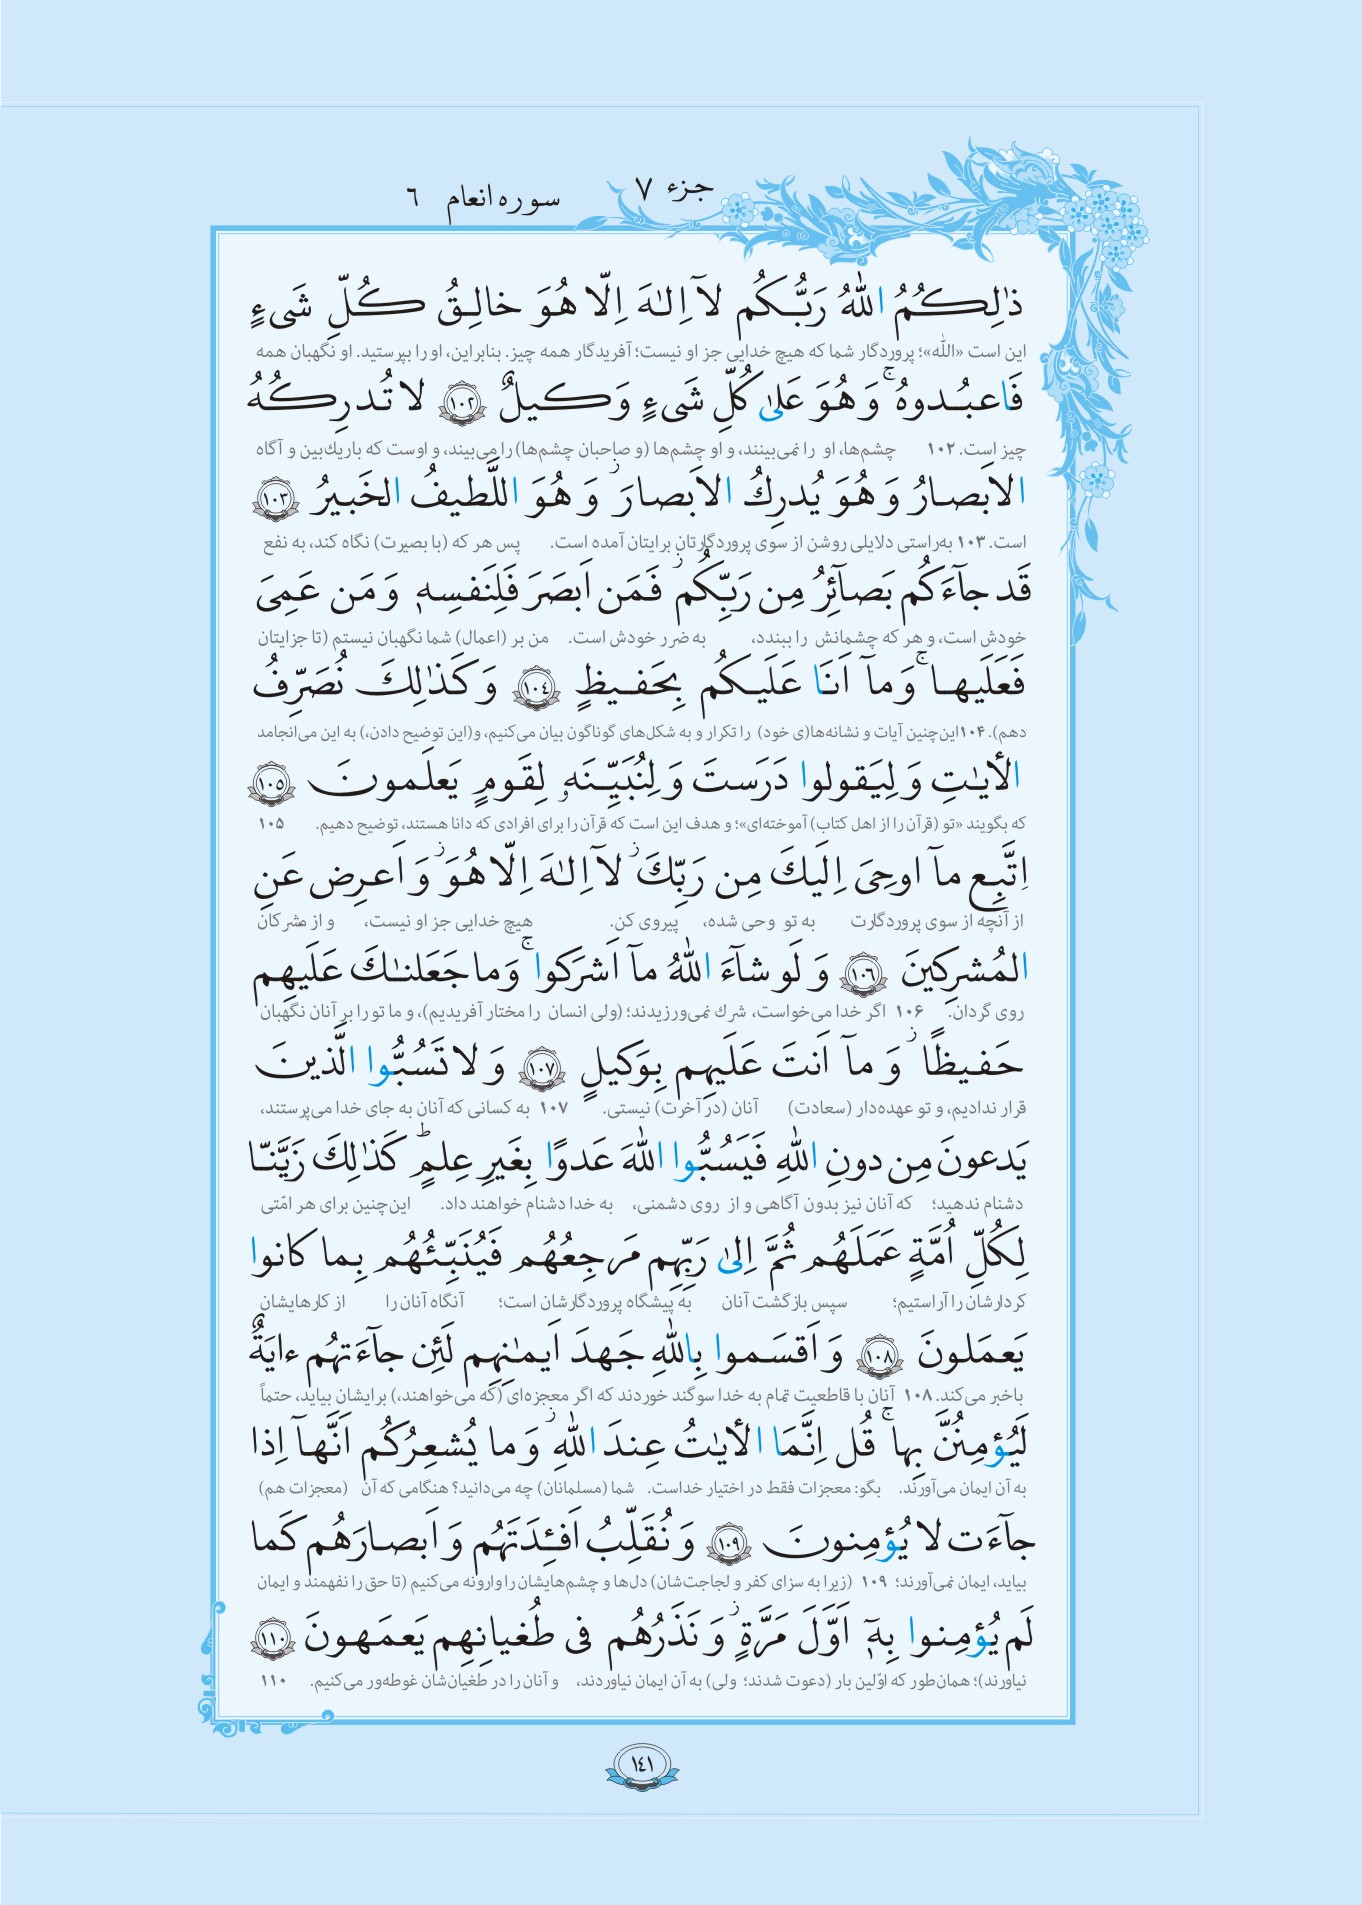 جزء ٧
سوره انعام ٦
ذٰلِكُمُ اللّٰهُ رَبُّكُم لآ اِلٰهَ اِلّا هُوَ خالِقُ كُلِّ شَىءٍ
این است «اللّٰه»؛ پروردگار شما که هیچ خدایی جز او نیست؛ آفریدگار همه چیز. بنابراین، او را بپرستید. او نگهبان همه
فَاعبُدوهُ ۚ وَ هُوَ عَلىٰ كُلِّ شَىءٍ وَكيلٌ ﴿١٠٢﴾ لا تُدرِكُهُ
چیز است. ۱۰۲ چشم‌ها، او را نمی‌بینند، و او چشم‌ها (و صاحبان چشم‌ها) را می‌بیند، و اوست که باریک‌بین و آگاه
الاَبصارُ وَ هُوَ يُدرِكُ الاَبصارَ ۖ وَ هُوَ اللَّطيفُ الخَبيرُ ﴿١٠٣﴾
است. ۱۰۳ به‌راستی دلایلی روشن از سوی پروردگارتان برایتان آمده است. پس هر که (با بصیرت) نگاه کند، به نفع
قَد جآءَكُم بَصآئِرُ مِن رَبِّكُم ۖ فَمَن اَبصَرَ فَلِنَفسِهٖ وَ مَن عَمِىَ
خودش است، و هر که چشمانش را ببندد، به ضرر خودش است. من بر (اعمال) شما نگهبان نیستم (تا جزایتان
فَعَلَيها ۚ وَ مآ اَنَا عَلَيكُم بِحَفيظٍ ﴿١٠٤﴾ وَ كَذٰلِكَ نُصَرِّفُ
دهم). ۱۰۴ این‌چنین آیات و نشانه‌ها(ی خود) را تکرار و به شکل‌های گوناگون بیان می‌کنیم، و(این توضیح دادن،) به این می‌انجامد
الأياتِ وَ لِيَقولوا دَرَستَ وَ لِنُبَيِّنَهٗ لِقَومٍ يَعلَمونَ ﴿١٠٥﴾
که بگویند «تو (قرآن را از اهل کتاب) آموخته‌ای»؛ و هدف این است که قرآن را برای افرادی که دانا هستند، توضیح دهیم. ۱۰۵
اِتَّبِع مآ اوحِىَ اِلَيكَ مِن رَبِّكَ ۖ لآ اِلٰهَ اِلّا هُوَ ۖ وَ اَعرِض عَنِ
از آنچه از سوی پروردگارت به تو وحی شده، پیروی کن. هیچ خدایی جز او نیست، و از مشرکان
المُشرِكينَ ﴿١٠٦﴾ وَ لَو شآءَ اللّٰهُ مآ اَشرَكوا ۚ وَ ما جَعَلناكَ عَلَيهِم
روی گردان. ۱۰۶ اگر خدا می‌خواست، شرک نمی‌ورزیدند؛ (ولی انسان را مختار آفریدیم)، و ما تو را بر آنان نگهبان
حَفيظًا ۖ وَ مآ اَنتَ عَلَيهِم بِوَكيلٍ ﴿١٠٧﴾ وَ لا تَسُبُّوا الَّذينَ
قرار ندادیم، و تو عهده‌دار (سعادت) آنان (در آخرت) نیستی. ۱۰۷ به کسانی که آنان به جای خدا می‌پرستند،
يَدعونَ مِن دونِ اللّٰهِ فَيَسُبُّوا اللّٰهَ عَدوًا بِغَيرِ عِلمٍ ۗ كَذٰلِكَ زَيَّنّا
دشنام ندهید؛ که آنان نیز بدون آگاهی و از روی دشمنی، به خدا دشنام خواهند داد. این‌چنین برای هر امّتی
لِكُلِّ اُمَّةٍ عَمَلَهُم ثُمَّ اِلىٰ رَبِّهِم مَرجِعُهُم فَيُنَبِّئُهُم بِما كانوا
کردارشان را آراستیم؛ سپس بازگشت آنان به پیشگاه پروردگارشان است؛ آنگاه آنان را از کارهایشان
يَعمَلونَ ﴿١٠٨﴾ وَ اَقسَموا بِاللّٰهِ جَهدَ اَيمٰنِهِم لَئِن جآءَتهُم ءايَةٌ
باخبر می‌کند. ۱۰۸ آنان با قاطعیت تمام به خدا سوگند خوردند که اگر معجزه‌ای (که می‌خواهند،) برایشان بیاید، حتماً
لَيُؤمِنُنَّ بِها ۚ قُل اِنَّمَا الأياتُ عِندَ اللّٰهِ ۖ وَ ما يُشعِرُكُم اَنَّهآ اِذا
به آن ایمان می‌آورند. بگو: معجزات فقط در اختیار خداست. شما (مسلمانان) چه می‌دانید؟ هنگامی که آن (معجزات هم)
جآءَت لا يُؤمِنونَ ﴿١٠٩﴾ وَ نُقَلِّبُ اَفئِدَتَهُم وَ اَبصارَهُم كَما
بیاید، ایمان نمی‌آورند؛ ۱۰۹ (زیرا به سزای کفر و لجاجت‌شان) دل‌ها و چشم‌هایشان را وارونه می‌کنیم (تا حق را نفهمند و ایمان
لَم يُؤمِنوا بِهٖٓ اَوَّلَ مَرَّةٍ ۖ وَ نَذَرُهُم فى طُغيانِهِم يَعمَهونَ ﴿١١٠﴾
نیاورند)؛ همان‌طور که اوّلین بار (دعوت شدند؛ ولی) به آن ایمان نیاوردند، و آنان را در طغیان‌شان غوطه‌ور می‌کنیم. ۱۱۰
١٤١